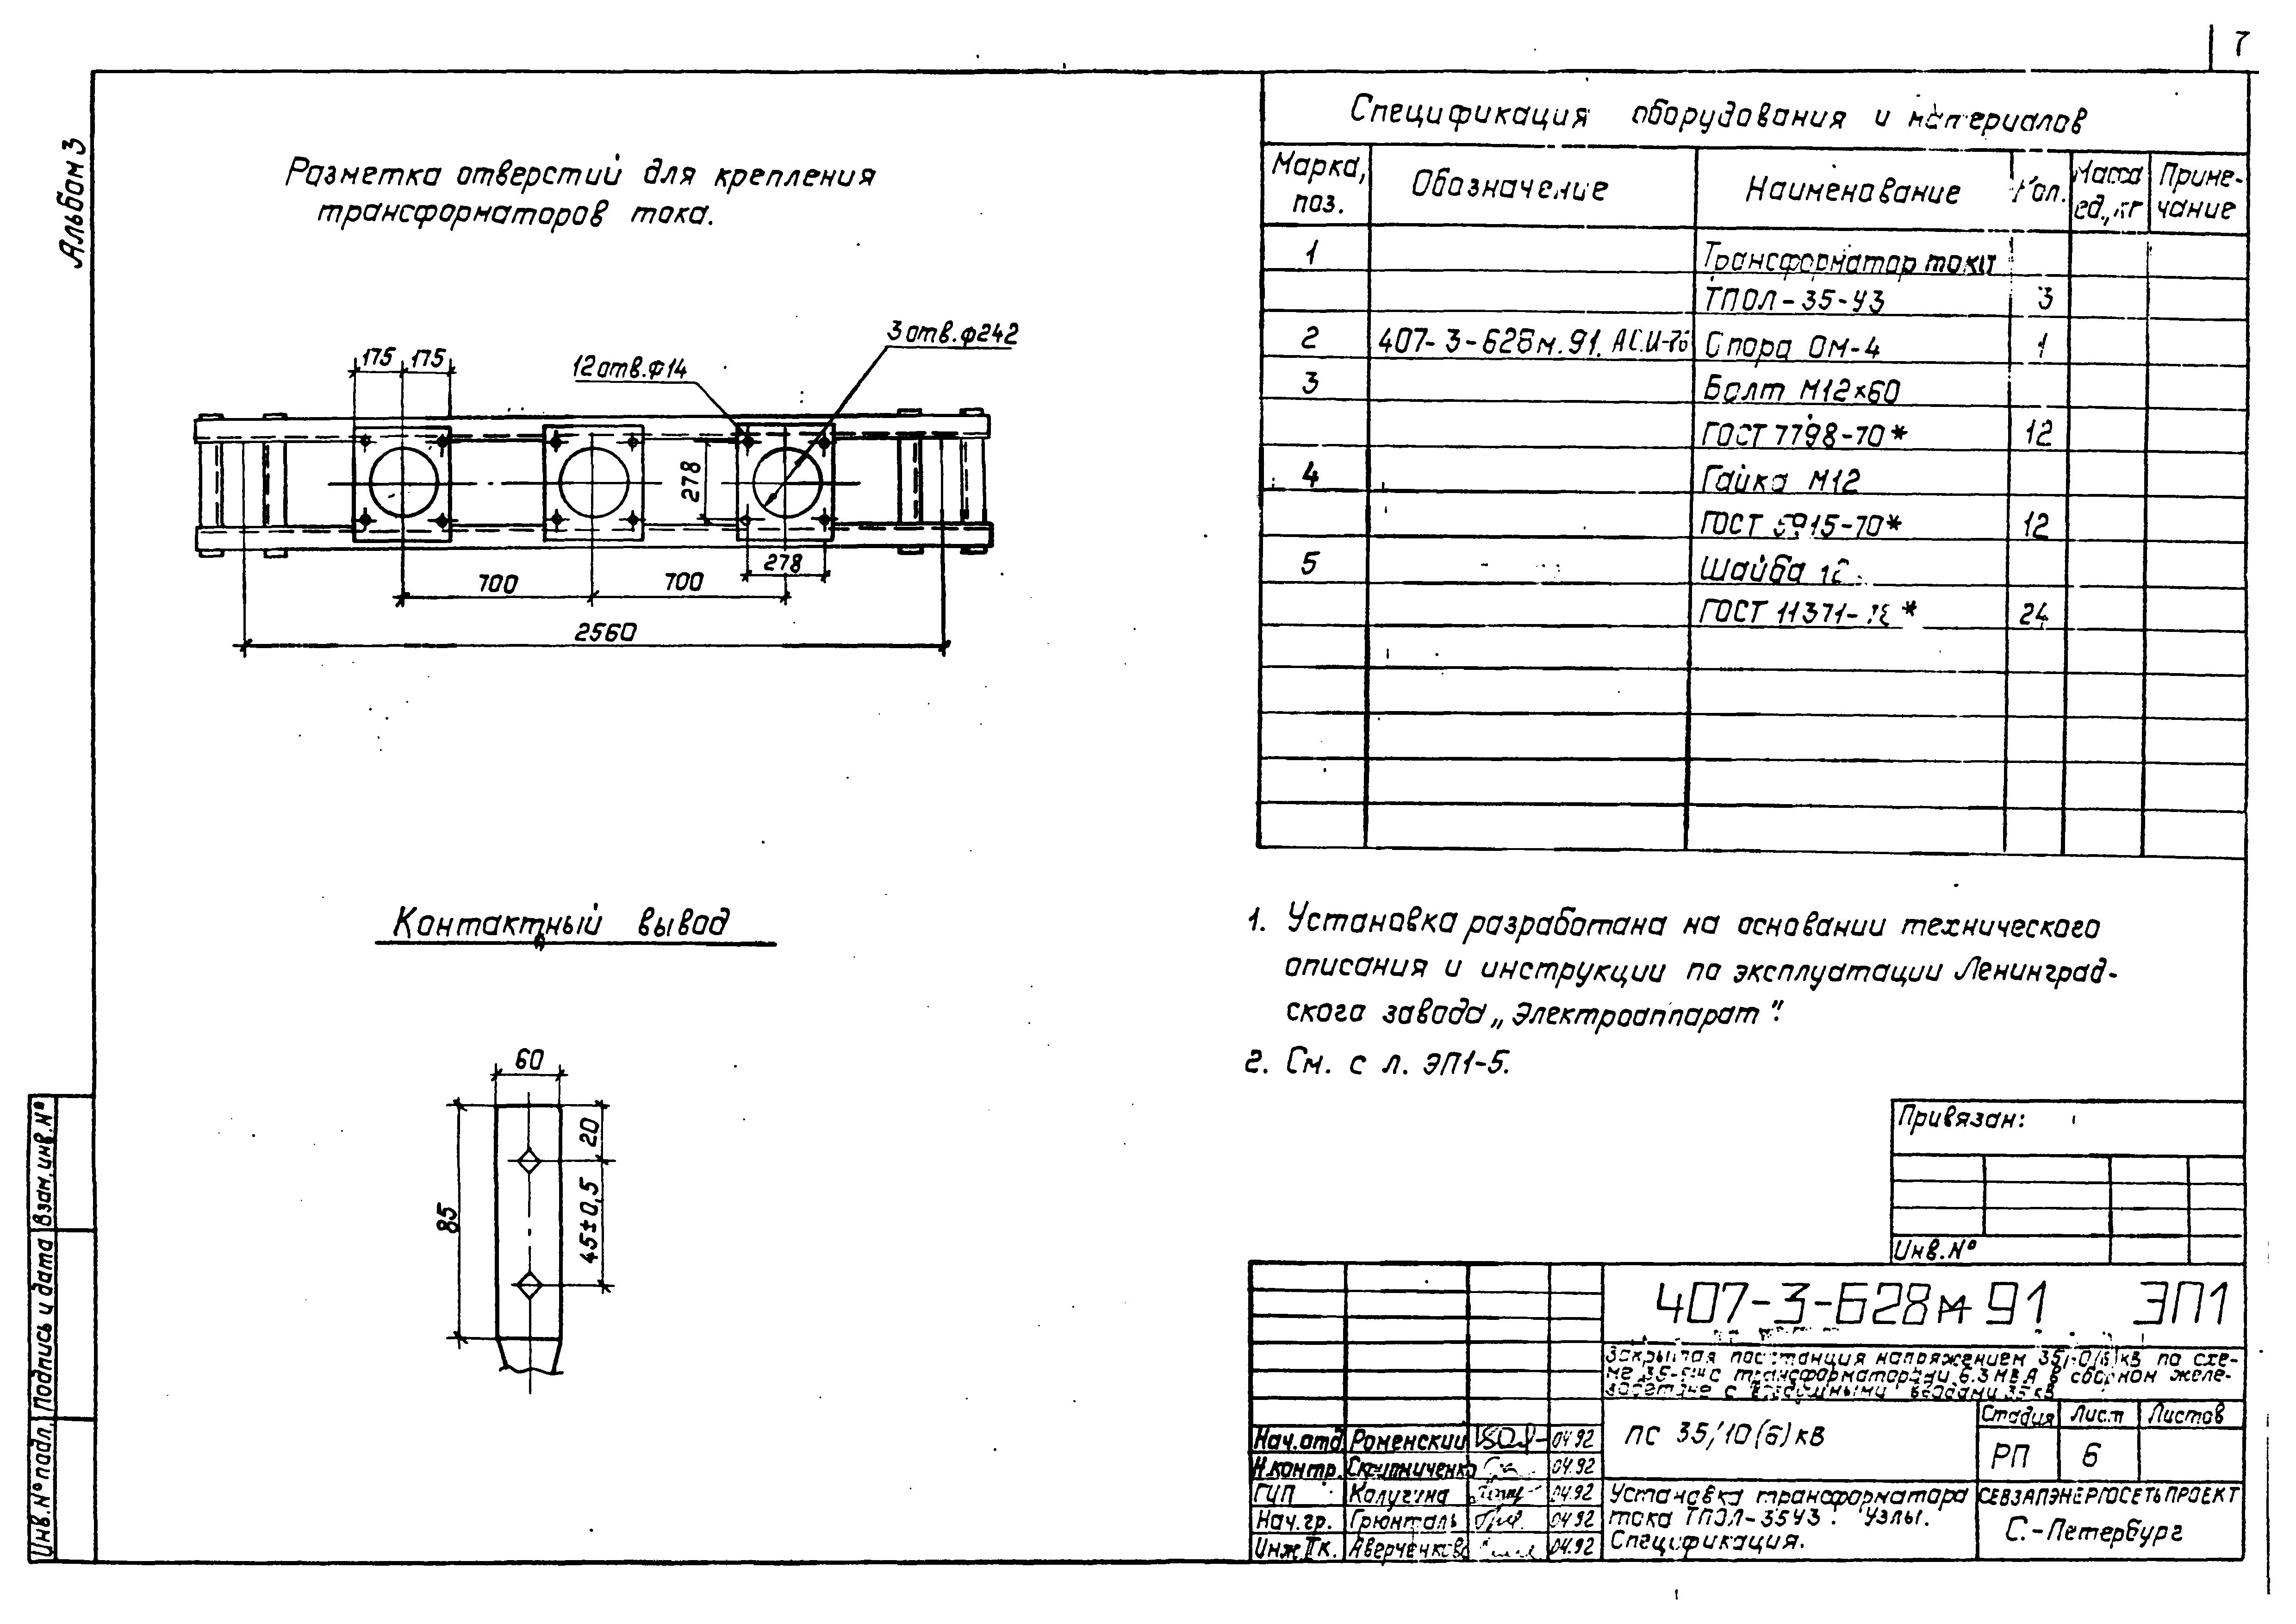 7
Альбом 3
Разметка отверстий для крепления
трансформаторов тока.
3 отв. ф242
12 отв. ф14
175 175
278
278
700 700
2560
Контактный вывод
60
20
45±0,5
85
Спецификация оборудования и материалов
Марка, поз. Обозначение Наименование Кол. Масса ед., кг Приме-чание
1 Трансформатор тока
ТПОЛ-35-У3 3
2 407-3-628м.91. Опора ОМ-4 1
3 Болт М12×60
ГОСТ 7798-70* 12
4 Гайка М12
ГОСТ 5915-70* 12
5 Шайба 12
ГОСТ 11371- * 24
1. Установка разработана на основании технического
описания и инструкции по эксплуатации Ленинград-
ского завода „Электроаппарат".
2. См. с л. ЭП1-5.
Привязан:
Инв. №
407-3-628м 91 ЭП1
Закрытая подстанция напряжением 35/10(6)кВ по схе-
трансформаторами 6.3 МВА в сборном желе-
вводами 35 кВ
ПС 35/10(6)кВ
Стадия Лист Листов
РП 6
Нач. отд. Роменский 04.92
Н.контр. Скрипниченко 04.92
ГИП Калугина 04.92
Нач. гр. Грюнталь 04.92
Инж. IIк. Аверченкова 04.92
Установка трансформатора
тока ТПОЛ-35У3. Узлы.
Спецификация.
СЕВЗАПЭНЕРГОСЕТЬПРОЕКТ
С.-Петербург
Инв. № подл. Подпись и дата Взам. инв. №